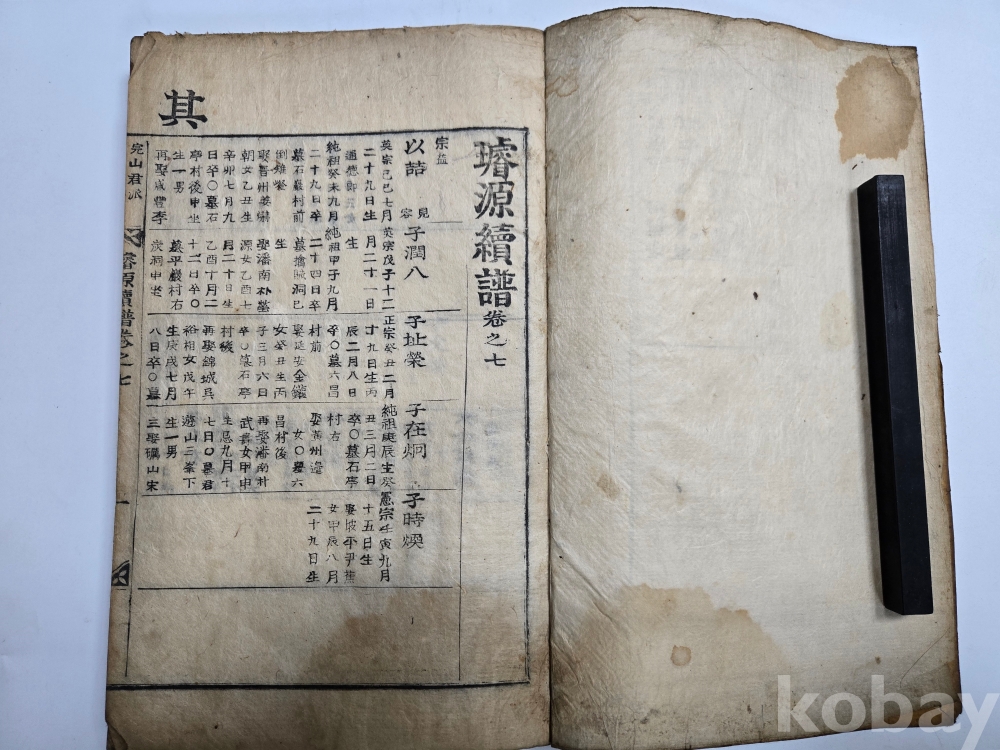 璿源續譜卷之七
宗益
以喆
英宗己巳七月
二十九日生
通德郎
純祖癸未九月
二十九日卒
墓石巖村前
娶晋州姜
朝女乙丑生
辛卯七月九
日卒〇墓石
亭村後申坐
生一男
再娶咸豊李
見
容
子潤八
英宗戊子十二
月二十一日
生
純祖甲子九月
二十四日卒
生
娶潘南朴
源女乙酉七
月二十日生
乙酉十月二
十二日卒〇
墓平巖村右
炭洞申坐
子址榮
正宗癸丑二月
十九日生丙
辰二月八日
卒〇墓六昌
村前
娶延安金
女癸丑生丙
子三月六日
卒〇墓石亭
村後
再娶錦城吳
裕相女戊午
生庚戌七月
八日卒〇墓
子在炯
純祖庚辰生癸
丑三月二日
卒〇墓石亭
村右
娶黃州邊
女〇墓六
昌村後
再娶潘南朴
武壽女甲申
生己九月十
七日〇墓君
遊山三峯下
生一男
三娶礪山宋
子時煥
憲宗壬寅九月
十五日生
娶坡平尹
女甲辰八月
二十九日生
其
完山君派
璿源續譜卷之七
一
kobay